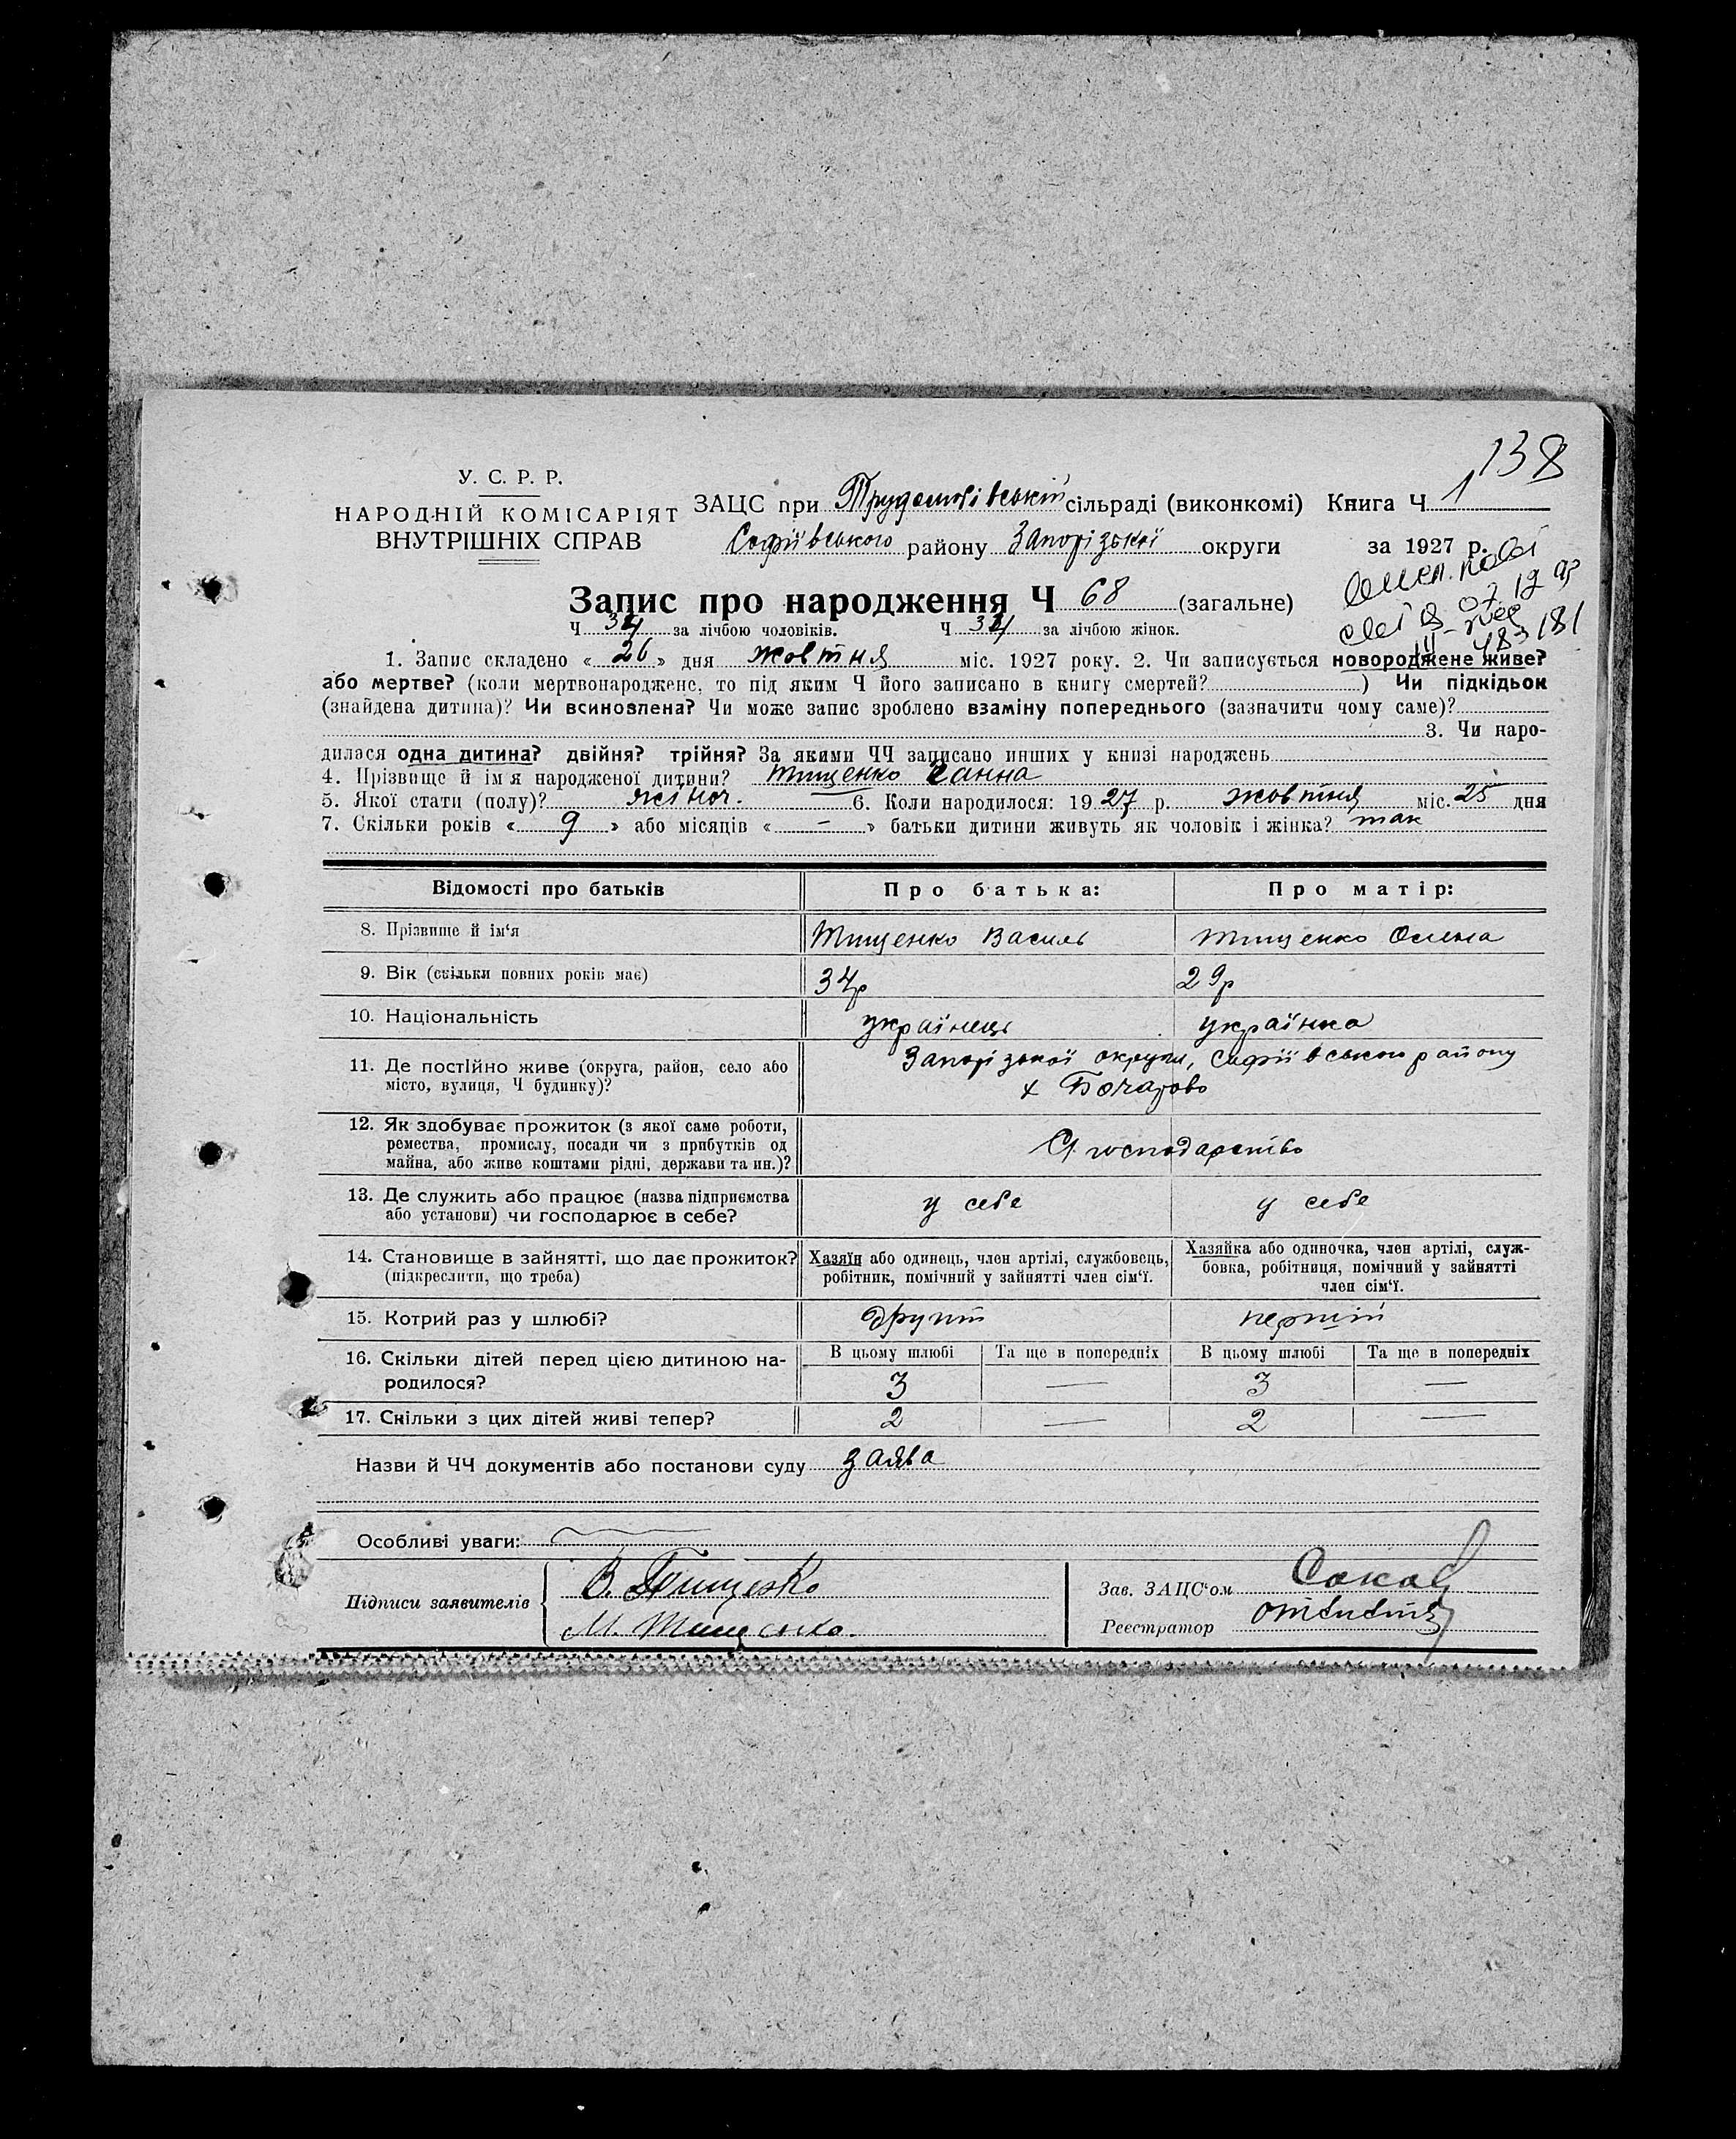 138
У. С. Р. Р.
НАРОДНІЙ КОМІСАРІЯТ
ВНУТРІШНІХ СПРАВ
ЗАЦС при сільраді (виконкомі) Книга Ч 1
Софіївського району Запорізької округи за 1927 р.
Запис про народження Ч 68 (загальне)
Ч за лічбою чоловіків. Ч за лічбою жінок.
1. Запис складено « 26 » дня жовтня міс. 1927 року. 2. Чи записується новороджене живе?
або мертве? (коли мертвонароджене, то під яким Ч його записано в книгу смертей? ) Чи підкідьок
(знайдена дитина)? Чи всиновлена? Чи може запис зроблено взаміну попереднього (зазначити чому саме)?
3. Чи наро-
дилася одна дитина? двійня? трійня? За якими ЧЧ записано инших у книзі народжень
4. Прізвище й ім'я народженої дитини? Тищенко Ганна
5. Якої стати (полу)? жіноч. — 6. Коли народилося: 19 27 р. жовтня міс. 25 дня
7. Скільки років « 9 » або місяців « – » батьки дитини живуть як чоловік і жінка? так
Відомості про батьків Про батька: Про матір:
8. Прізвище й ім'я Тищенко Василь Тищенко Олена
9. Вік (скільки повних років має) 34р 29р
10. Національність українець українка
11. Де постійно живе (округа, район, село або місто, вулиця, Ч будинку)? Запорізької округи, Софіївського району
х Бочарово
12. Як здобуває прожиток (з якої саме роботи,
ремества, промислу, посади чи з прибутків од
майна, або живе коштами рідні, держави та ин.)? С. господарство
13. Де служить або працює (назва підприємства
або установи) чи господарює в себе? у себе у себе
14. Становище в зайнятті, що дає прожиток?
(підкреслити, що треба)
Хазяїн або одинець, член артілі, службовець,
робітник, помічний у зайнятті член сім'ї.
Хазяйка або одиночка, член артілі, служ-
бовка, робітниця, помічний у зайнятті
член сім'ї.
15. Котрий раз у шлюбі? другий перший
16. Скільки дітей перед цією дитиною на-
родилося?
В цьому шлюбі Та ще в попередніх В цьому шлюбі Та ще в попередніх
3 — 3 —
17. Скільки з цих дітей живі тепер? 2 — 2 —
Назви й ЧЧ документів або постанови суду заява
Особливі уваги:
Підписи заявителів
В. Тищенко
М. Тищенко.
Зав. ЗАЦС'ом
Реєстратор